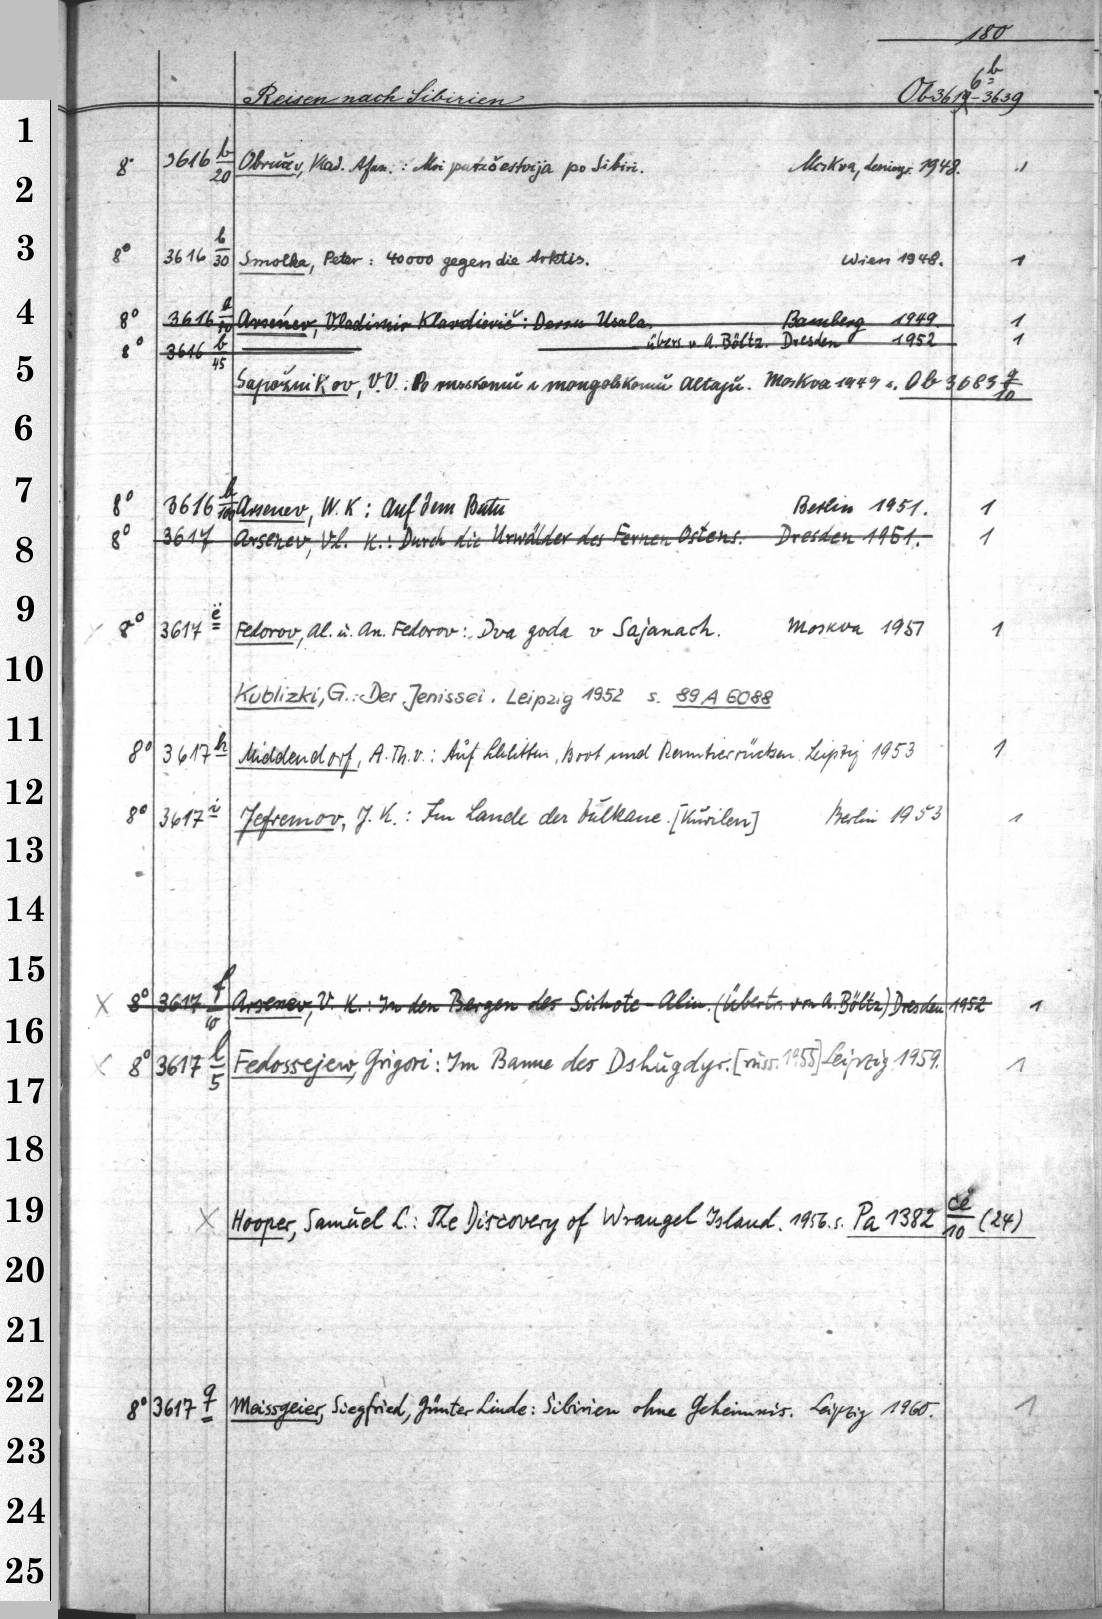 180
Reisen nach Sibirien Ob 3616 b - 3639
8° 3616 b/20 Obručev, Vlad. Afan. : Moi putešestvija po Sibiri. Moskva, Leningr. 1948. 1
8° 3616 b/30 Smolka, Peter : 40000 gegen die Arktis. Wien 1948. 1
8° 3616 Arsen'ev, Vladimir Klavdievič : Dersu Usala. Bamberg 1949. 1
8° 3616 b/45 übers. v. A. Böltz. Dresden 1952 1
Sapožnikov, V. V. : Po russkomu i mongolskomu Altaju. Moskva 1949 s. Ob 3683 q/10
8° 3616 b/100 Arsenev, W. K : Auf dem Batu Berlin 1951. 1
8° 3617 Arsenev, Vl. K. : Durch die Urwälder des Fernen Ostens. Dresden 1951. 1
8° 3617 e Fedorov, Al. u. An. Fedorov : Dva goda v Sajanach. Moskva 1951 1
Kublizki, G. : Der Jenissei. Leipzig 1952 s. 89 A 6088
8° 3617 h Middendorf, A. Th. v. : Auf Schlitten, Boot und Renntierrücken. Leipzig 1953 1
8° 3617 i Jefremov, J. K. : Im Lande der Vulkane. [Kurilen] Berlin 1953 1
X 8° 3617 Arsenev, V. K. : In den Bergen des Sichote-Alin. (Übertr. von A. Böltz) Dresden 1952 1
X 8° 3617 l/5 Fedossejew, Grigori : Im Banne des Dshugdyr. [russ. 1955] Leipzig 1959. 1
X Hooper, Samuel L. : The Discovery of Wrangel Island. 1956. s. Pa 1382 ce/10 (24)
8° 3617 q Meissgeier, Siegfried, Günter Linde : Sibirien ohne Geheimnis. Leipzig 1960. 1
1
2
3
4
5
6
7
8
9
10
11
12
13
14
15
16
17
18
19
20
21
22
23
24
25